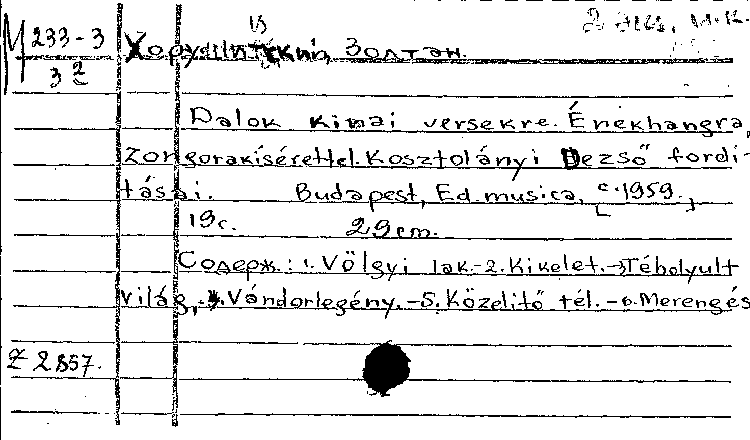 М 233-3
3 2
Золтан.
Dalok kinai versekre. Énekhangra,
zongorakisérettel. Kosztolányi Dezső fordi-
tásai. Budapest, Ed. musica, [c. 1959.]
19 c. 29 cm.
Содерж.: 1. Völgyi lak.-2. Kikelet.-3. Tébolyult
világ,-4. Vándorlegény.-5. Közelitő tél.-6. Merengés
Z 2857.